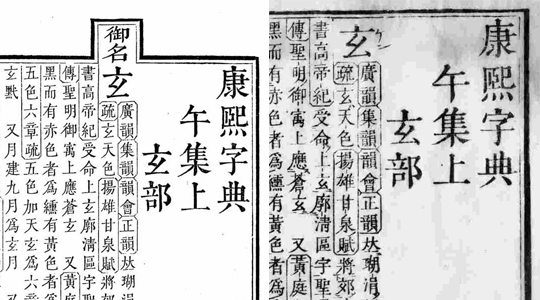 康熙字典
午集上
玄部
御名
玄廣韻集韻韻會正韻𠀤瑚涓
疏玄天色揚雄甘泉賦將郊
書高帝紀受命上玄廓清區宇聖
傳聖明御寓上應蒼玄 又黃庭
黑而有赤色者爲纁有黃色者爲
五色六章疏五色加天玄爲六
玄黓 又月建九月爲玄月
康熙字典
午集上
玄部
玄
廣韻集韻韻會正韻𠀤瑚涓
疏玄天色揚雄甘泉賦將郊
書高帝紀受命上玄廓清區宇聖
傳聖明御寓上應蒼玄 又黃庭
黑而有赤色者爲纁有黃色者爲